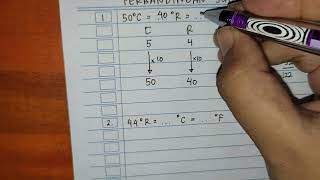 1 50°C = 40 °R = ...
C R
5 4
x10 x10
50 40
2. 44°R = .... °C = .. °F